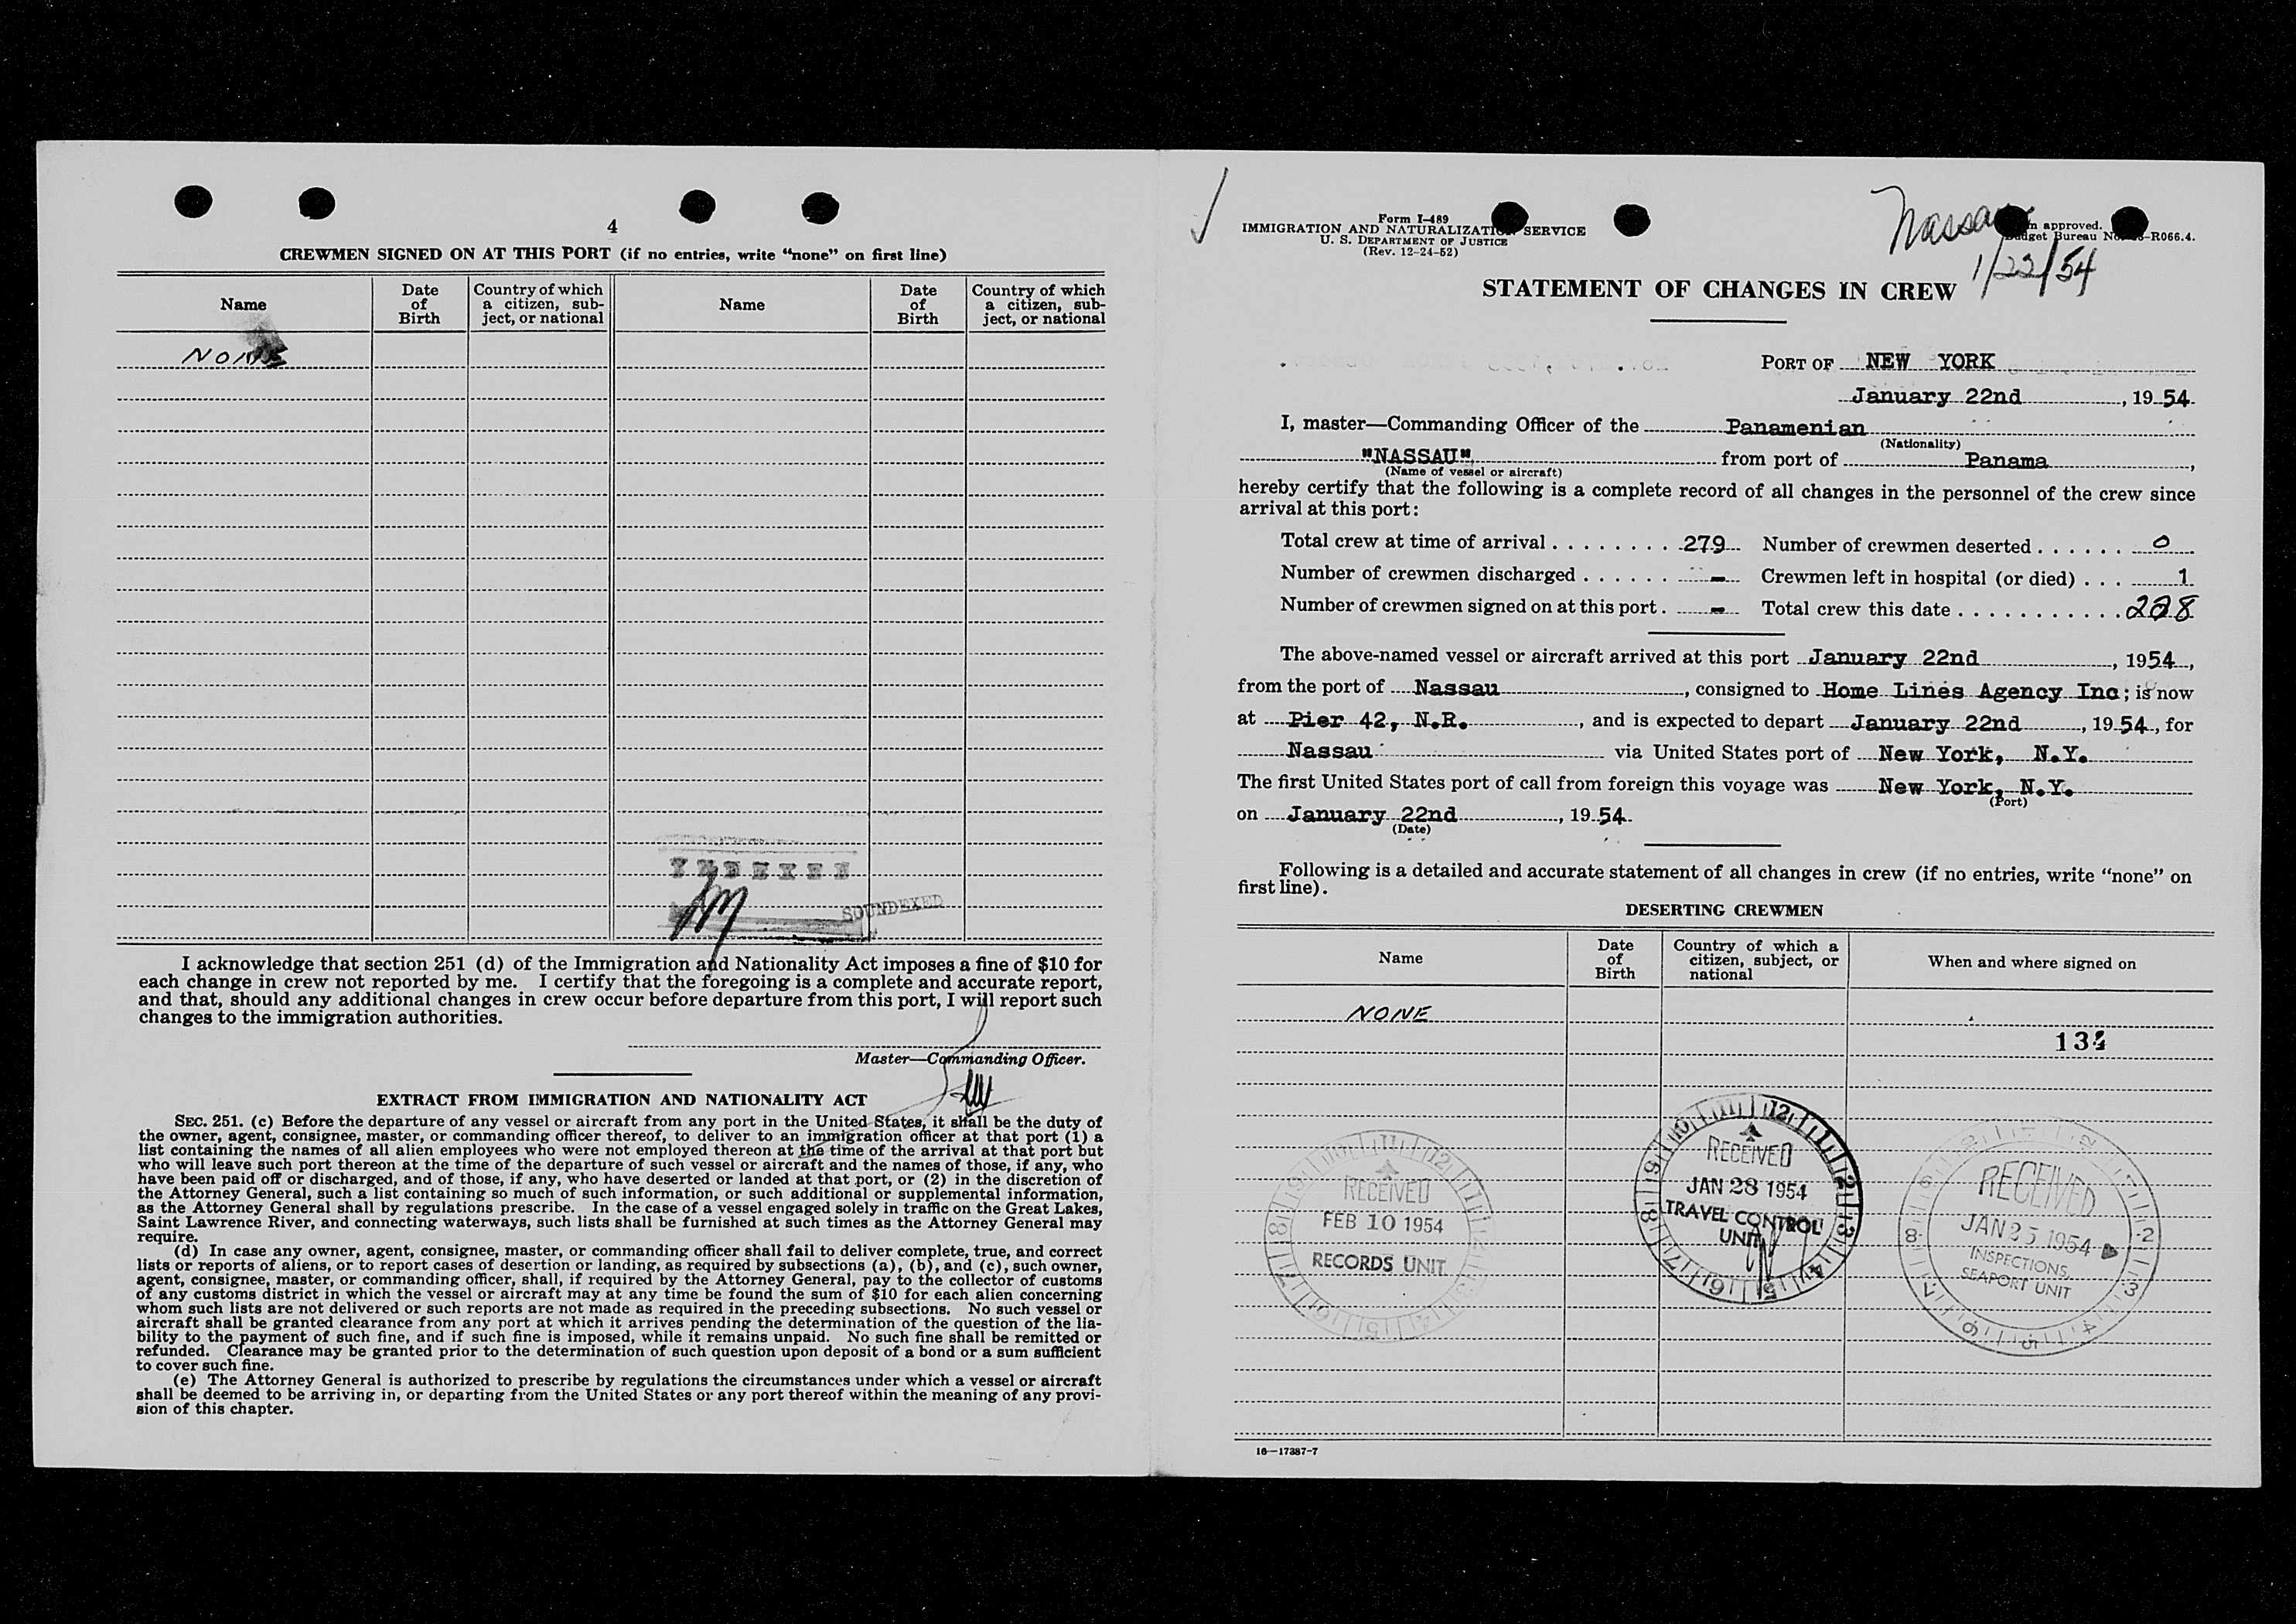 4
CREWMEN SIGNED ON AT THIS PORT (if no entries, write “none” on first line)
Name
Date of Birth
Country of which a citizen, sub-ject, or national
Name
Date of Birth
Country of which a citizen, sub-ject, or national
NONE
SOUNDEXED
I acknowledge that section 251 (d) of the Immigration and Nationality Act imposes a fine of $10 for
each change in crew not reported by me. I certify that the foregoing is a complete and accurate report,
and that, should any additional changes in crew occur before departure from this port, I will report such
changes to the immigration authorities.
Master—Commanding Officer.
EXTRACT FROM IMMIGRATION AND NATIONALITY ACT
SEC. 251. (c) Before the departure of any vessel or aircraft from any port in the United States, it shall be the duty of
the owner, agent, consignee, master, or commanding officer thereof, to deliver to an immigration officer at that port (1) a
list containing the names of all alien employees who were not employed thereon at the time of the arrival at that port but
who will leave such port thereon at the time of the departure of such vessel or aircraft and the names of those, if any, who
have been paid off or discharged, and of those, if any, who have deserted or landed at that port, or (2) in the discretion of
the Attorney General, such a list containing so much of such information, or such additional or supplemental information,
as the Attorney General shall by regulations prescribe. In the case of a vessel engaged solely in traffic on the Great Lakes,
Saint Lawrence River, and connecting waterways, such lists shall be furnished at such times as the Attorney General may
require.
(d) In case any owner, agent, consignee, master, or commanding officer shall fail to deliver complete, true, and correct
lists or reports of aliens, or to report cases of desertion or landing, as required by subsections (a), (b), and (c), such owner,
agent, consignee, master, or commanding officer, shall, if required by the Attorney General, pay to the collector of customs
of any customs district in which the vessel or aircraft may at any time be found the sum of $10 for each alien concerning
whom such lists are not delivered or such reports are not made as required in the preceding subsections. No such vessel or
aircraft shall be granted clearance from any port at which it arrives pending the determination of the question of the lia-
bility to the payment of such fine, and if such fine is imposed, while it remains unpaid. No such fine shall be remitted or
refunded. Clearance may be granted prior to the determination of such question upon deposit of a bond or a sum sufficient
to cover such fine.
(e) The Attorney General is authorized to prescribe by regulations the circumstances under which a vessel or aircraft
shall be deemed to be arriving in, or departing from the United States or any port thereof within the meaning of any provi-
sion of this chapter.
Form I-489
IMMIGRATION AND NATURALIZATION SERVICE
U. S. DEPARTMENT OF JUSTICE
(Rev. 12-24-52)
Nassau
1/22/54
approved.
Budget Bureau No. -R066.4.
STATEMENT OF CHANGES IN CREW
PORT OF NEW YORK
January 22nd, 1954
I, master—Commanding Officer of the Panamenian
(Nationality)
"NASSAU", from port of Panama,
(Name of vessel or aircraft)
hereby certify that the following is a complete record of all changes in the personnel of the crew since
arrival at this port:
Total crew at time of arrival . . . . . . . . 279 Number of crewmen deserted . . . . . . 0
Number of crewmen discharged . . . . . . - Crewmen left in hospital (or died) . . . 1
Number of crewmen signed on at this port . - Total crew this date . . . . . . . . . . . 228
The above-named vessel or aircraft arrived at this port January 22nd, 1954,
from the port of Nassau, consigned to Home Lines Agency Inc; is now
at Pier 42, N.R., and is expected to depart January 22nd, 1954, for
Nassau via United States port of New York, N.Y.
The first United States port of call from foreign this voyage was New York, N.Y.
(Port)
on January 22nd, 1954.
(Date)
Following is a detailed and accurate statement of all changes in crew (if no entries, write “none” on
first line).
DESERTING CREWMEN
Name
Date of Birth
Country of which a citizen, subject, or national
When and where signed on
NONE
RECEIVED
FEB 10 1954
RECORDS UNIT
RECEIVED
JAN 28 1954
TRAVEL CONTROL
UNIT
RECEIVED
JAN 25 1954
INSPECTIONS,
SEAPORT UNIT
16—17387-7